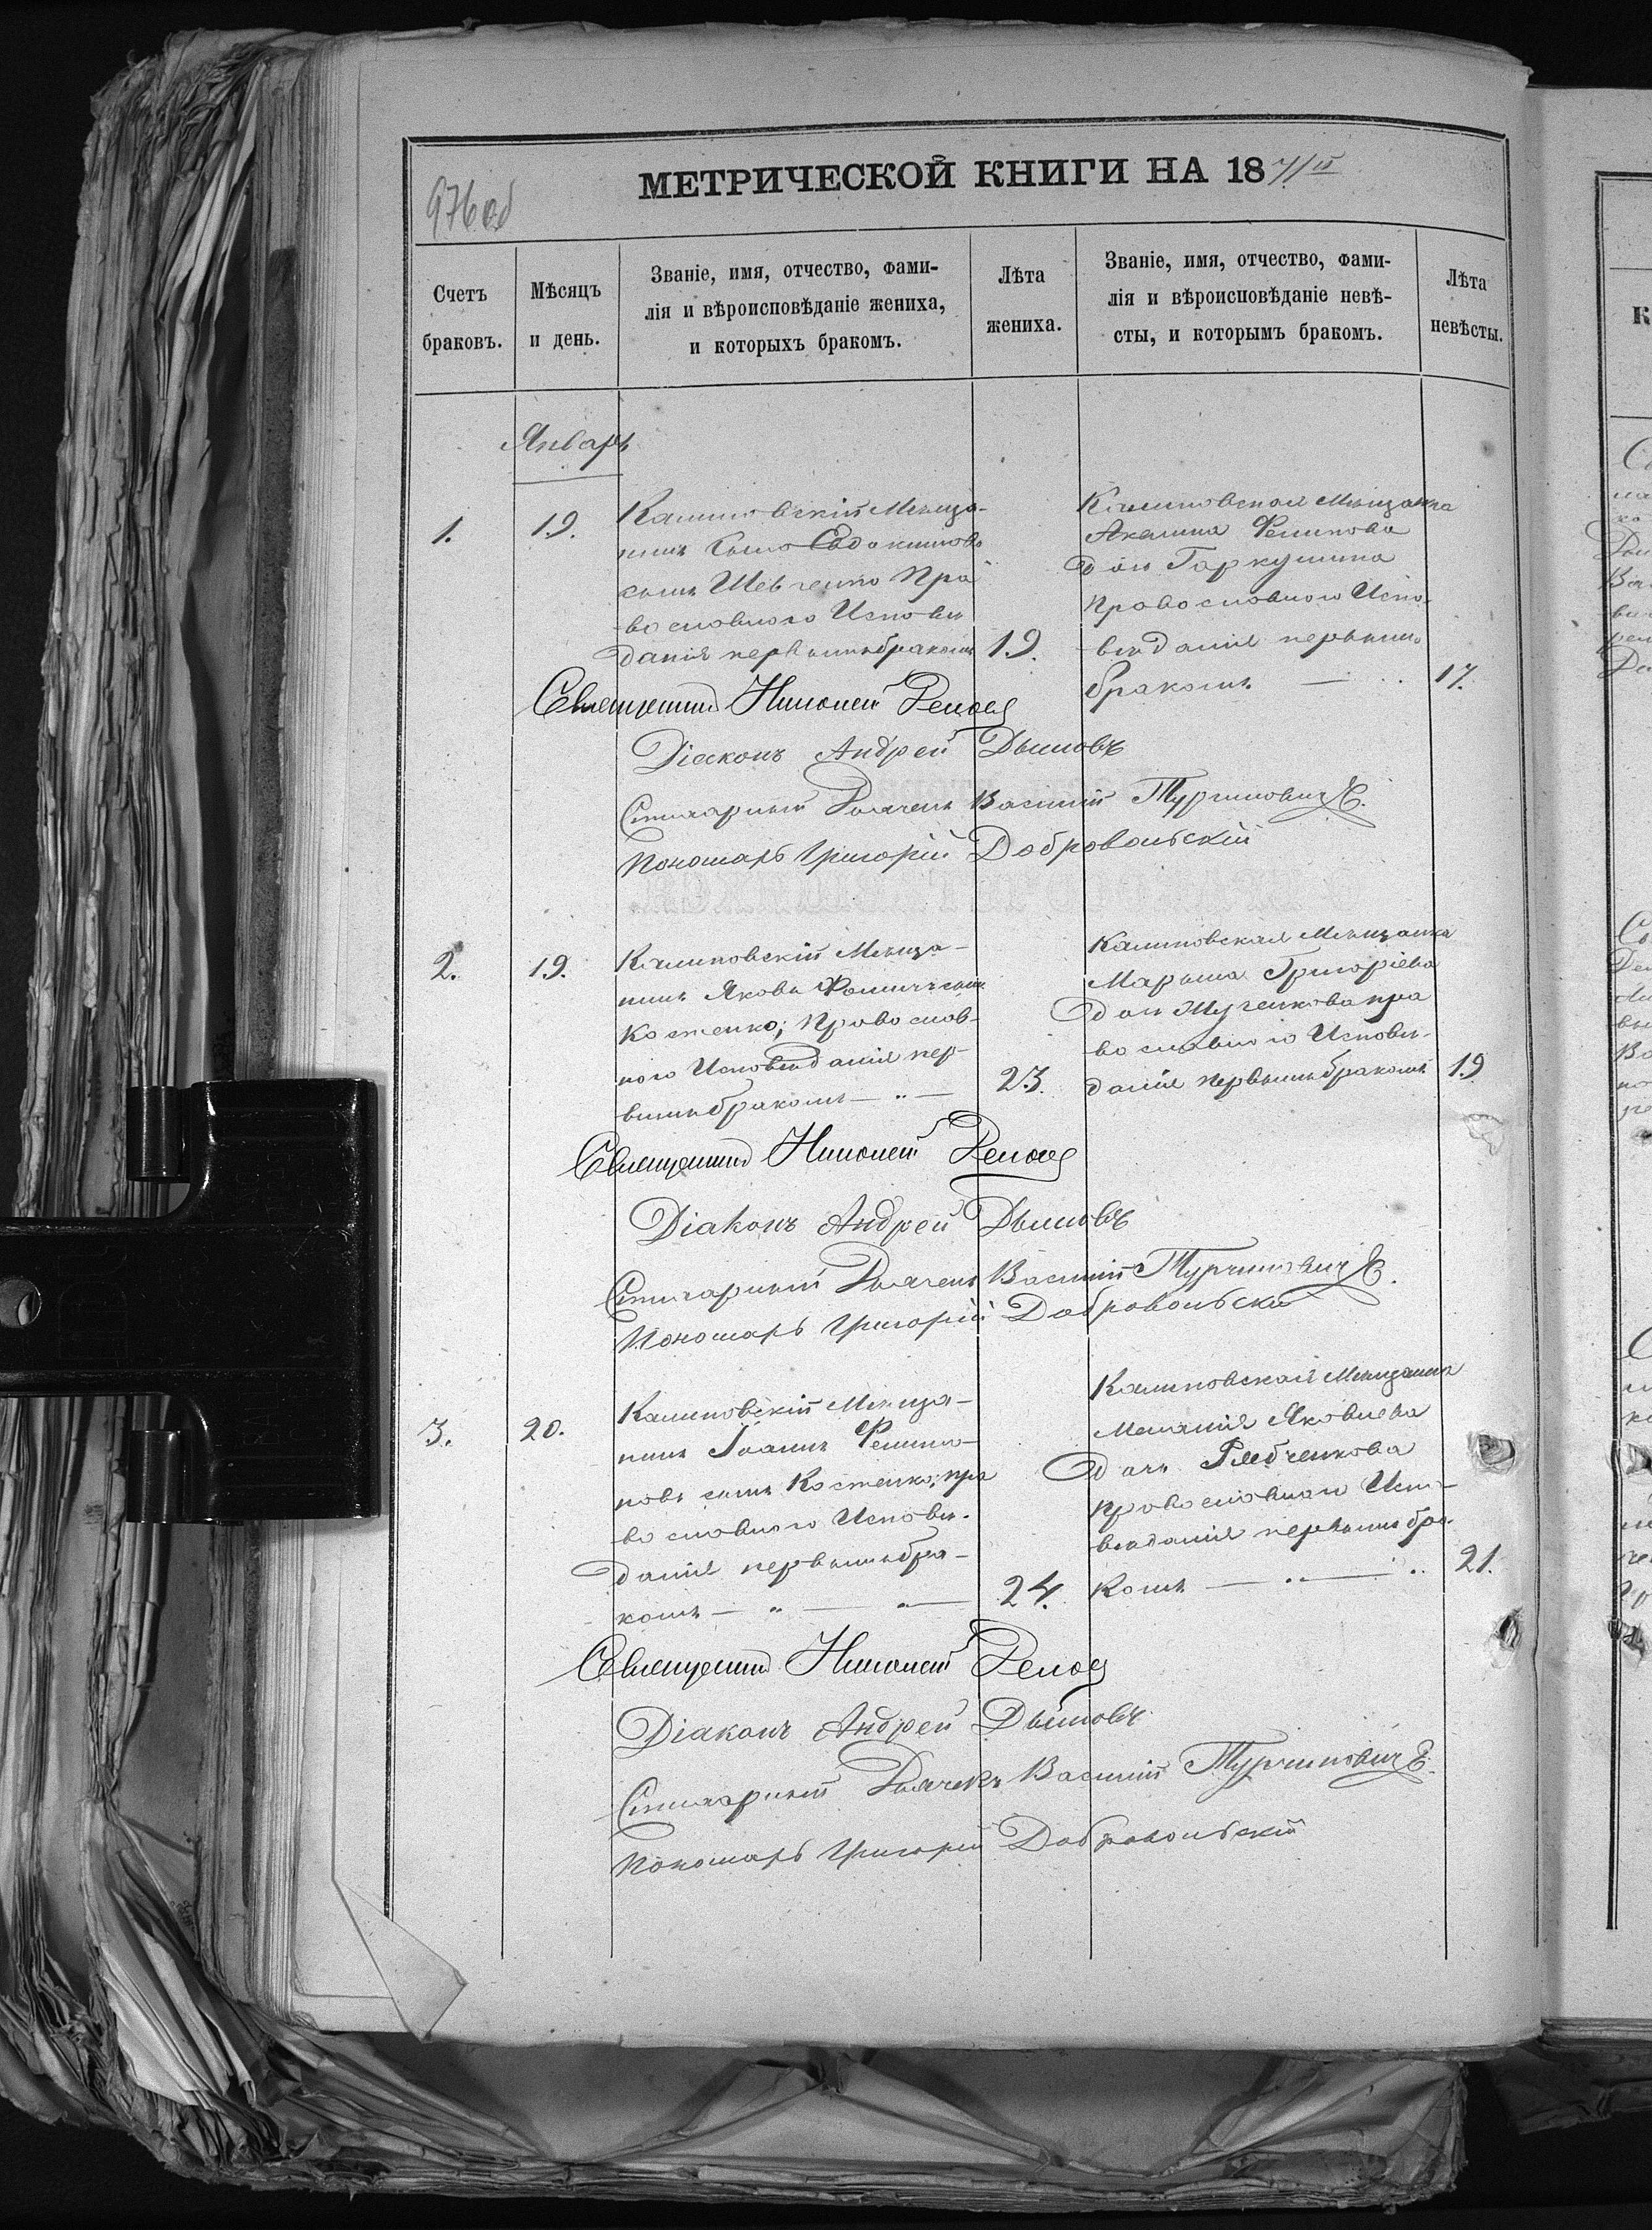 976об
МЕТРИЧЕСКОЙ КНИГИ НА 1871й
Счетъ браковъ.
Мѣсяцъ и день.
Званіе, имя, отчество, фами-
лія и вѣроисповѣданіе жениха,
и которыхъ бракомъ.
Лѣта жениха.
Званіе, имя, отчество, фами-
лія и вѣроисповѣданіе невѣ-
сты, и которымъ бракомъ.
Лѣта невѣсты.
Январь
1.
19.
Калиновскій Мѣща-
нинъ Евдокимовъ
сынъ Шевченко Пра
вославного Исповѣ
данія первымъ бракомъ
19.
Калиновская Мѣщанка
Акелина Филипова
дочь Гаркушина
православного Испо-
вѣданія первымъ
бракомъ — ..
17.
Священникъ
Діаконъ Андрей Дымовъ
Стихарный Дьячекъ Василій Турчиновичъ.
Пономарь Григорій Добровольскій
2.
19.
Калиновскій Мѣща-
нинъ Яковъ Фоминъ сынъ
Костенко; Православ-
ного Исповѣданія пер-
вымъ бракомъ — „ —
23.
Калиновская Мѣщанка
Марьина Григоріева
дочь пра
вославного Исповѣ-
данія первымъ бракомъ
19
Священникъ
Діаконъ Андрей Дымовъ
Стихарный Дьячекъ Василій Турчиновичъ.
Пономарь Григорій Добровольскій
3.
20.
Калиновскій Мѣща-
нинъ Іоаннъ Филипо-
повъ сынъ Костенко; пра
вославного Исповѣ-
данія первымъ бра-
комъ — „ — „ —
24.
Калиновская Мѣщанка
Меланія Яковлева
дочь Рябченкова
православного Испо-
вѣданія первымъ бра-
комъ — „ — ..
21.
Священникъ
Діаконъ Андрей Дымовъ
Стихарный Дьячекъ Василій Турчиновичъ.
Пономарь Григорій Добровольскій